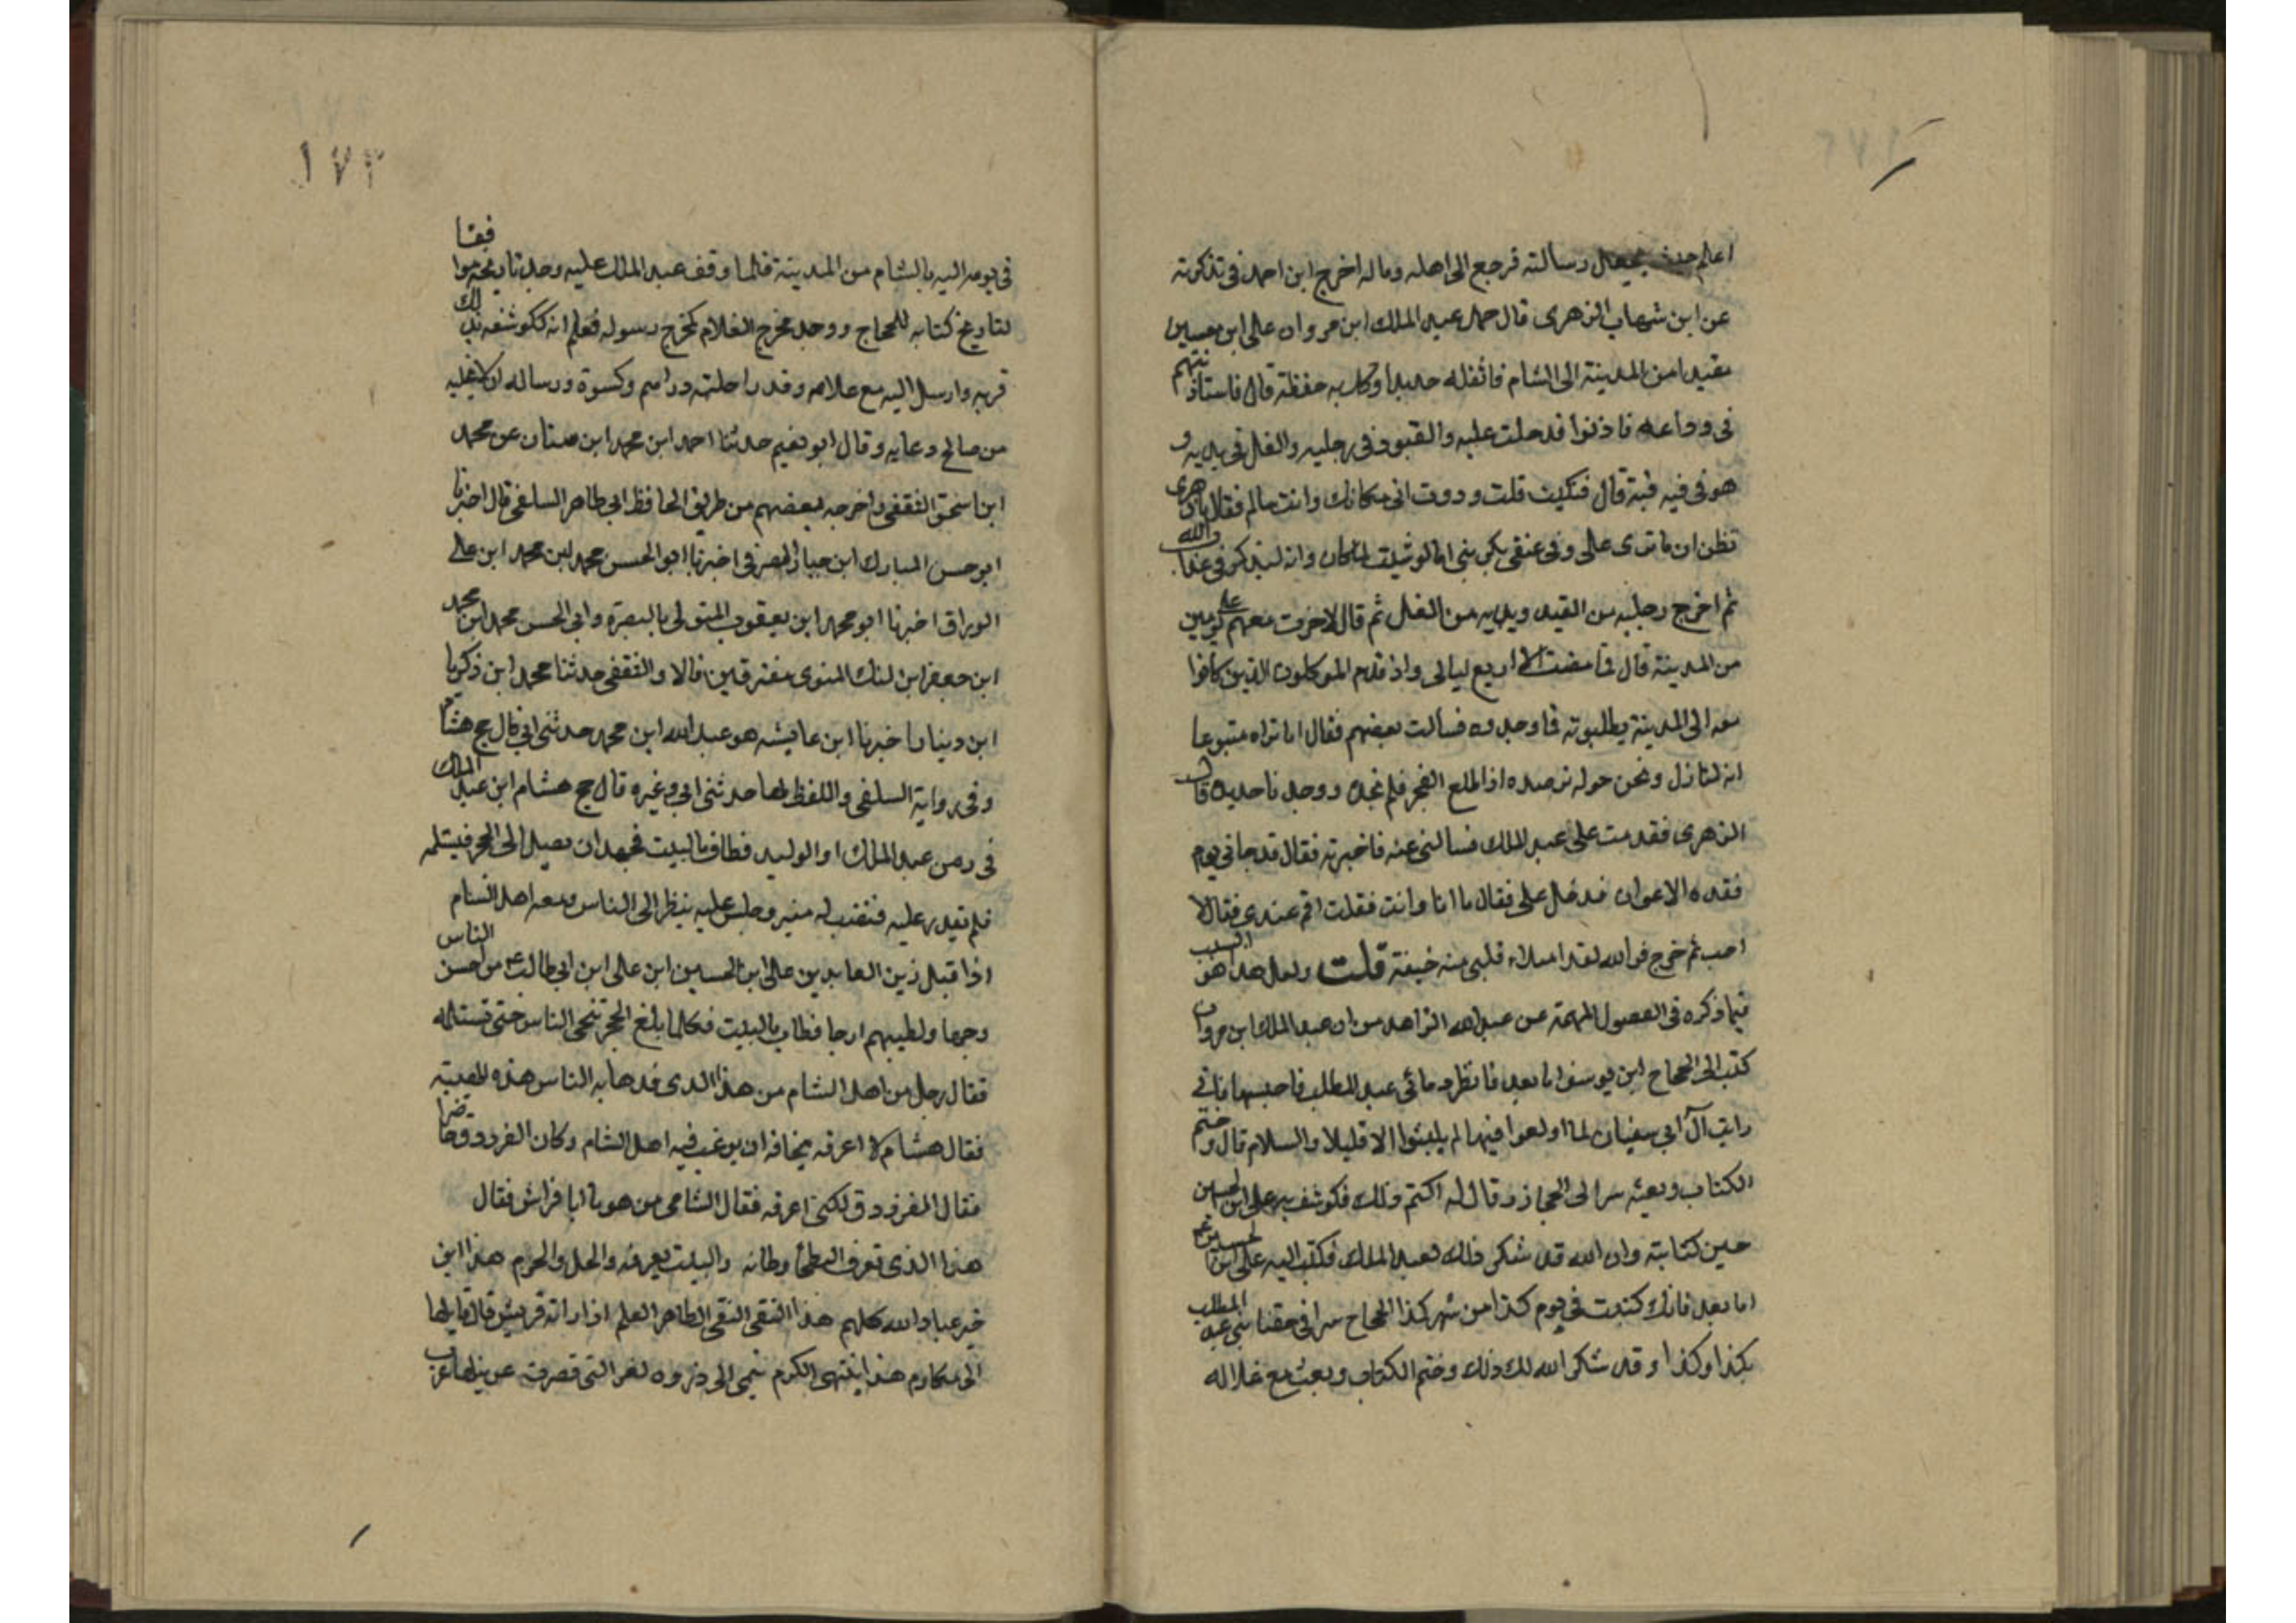 اعلم حيث يجعل رسالته فرجع الى اهله وماله اخرج ابن احمد فى تذكرته
عن ابن شهاب الزهرى قال حمل عبد الملك ابن مروان على ابن حسين
مقيدا من المدينة الى الشام فاثقله حديدا ووكل به حفظة قال فاستاذنتهم
فى وداعه فاذنوا فدخلت عليه والقيود فى رجليه والغل فى يديه و
هو فى فيه قبة قال فبكيت قلت وددت انى مكانك وانت سالم فقال يا زهرى
تظن ان ما ترى على وفى عنقى يكربنى اما لو شيت لما كان وانه ليذكر فى عذاب والله
ثم اخرج رجليه من القيد ويديه من الغل ثم قال لا خرت معهم على يومين
من المدينة قال فما مضت الا اربع ليالى واذ قدم الموكلون الذين كانوا
معه الى المدينة يطلبونه فما وجدوه فسالت بعضهم فقال انا نراه متبوعا
انه لنازل ونحن حوله نرصده اذا طلع الفجر فلم نجده ووجدنا حديده قال
الزهرى فقدمت على عبد الملك فسالنى عنه فاخبرته فقال قد جانى يوم
فقده الاعوان فدخل على فقال ما انا وانت فقلت اقم عندى فقال لا
احب ثم خرج فوالله لقد امتلاء قلبى منه خيفة قلت ولعل هذا هو السبب
فيما ذكره فى الفصول المهمة عن عبد الله الزاهد من ان عبد الملك ابن مروان
كتب الى الحجاج ابن يوسف اما بعد فانظر دمائى عبد المطلب فاجتنبها فانى
رايت آل ابى سفيان لما اولعوا فيها لم يلبثوا الا قليلا والسلام قال وختم
الكتاب وبعثه سرا الى الحجاز وقال له اكتم ذلك فكوشف به على ابن الحسين
حين كتابته وان الله قد شكر ذلك لعبد الملك فكتب اليه على ابن الحسين ع
اما بعد فانك كتبت فى يوم كذا من شهر كذا الحجاج سرا فى حقنا بنى عبد المطلب
بكذا وكذا وقد شكر الله لك ذلك وختم الكتاب وبعث مع غلام له
١٧٣
فى يومه اليه بالشام من المدينة فلما وقف عبد الملك عليه وجد تاريخه موافقا
لتاريخ كتابه للحجاج ووجد مخرج الغلام كمخرج رسوله فعلم انه كوشف بذلك
فسر به وارسل اليه مع غلامه وقدر احلته دراهم وكسوة وساله ان لا يخليه
من صالح دعايه وقال ابو نعيم حدثنا احمد ابن محمد ابن سنان عن محمد
ابن اسحق الثقفى واخرجه بعضهم من طريق الحافظ ابى طاهر السلفى قال اخبرنا
ابو حسن المبارك ابن حيان المصرفى اخبرنا ابو الحسن محمد ابن محمد ابن على
الوراق اخبرنا ابو محمد ابن يعقوب المتولى بالبصرة وابى الحسن محمد ابن محمد
ابن جعفر ابن لنك المنوى مفترقين قالا والثقفى حدثنا محمد ابن زكريا
ابن دينار اخبرنا ابن عايشه هو عبد الله ابن محمد حدثنى ابى قال حج هشام
وفى رواية السلفى واللفظ لها حدثنى ابى وغيره قال حج هشام ابن عبد الملك
فى زمن عبد الملك او الوليد فطاف بالبيت فجهد ان يصل الى الحجر فيستلمه
فلم يقدر عليه فنصب له منبر وجلس عليه ينظر الى الناس ومعه اهل الشام
اذ اقبل زين العابدين على ابن الحسين ابن على ابن ابى طالب ع من احسن الناس
وجها واطيبهم ارجا فطاف بالبيت فكلما بلغ الحجر تنحى الناس حتى تستلمه
فقال رجل من اهل الشام من هذا الذى قد هابه الناس هذه الهيبة
فقال هشام لا اعرفه مخافة ان يرغب فيه اهل الشام وكان الفرزدق حاضرا
فقال الفرزدق لكنى اعرفه فقال الشامى من هو يا ابا فراش فقال
هذا الذى تعرف البطحا وطاته والبيت يعرفه والحل والحرم هذا ابن
خير عباد الله كلهم هذا التقى النقى الطاهر العلم اذا راته قريش قال قايلها
الى مكارم هذا ينتهى الكرم ينمى الى ذروه لعز التى قصرت عن نيلها عرب